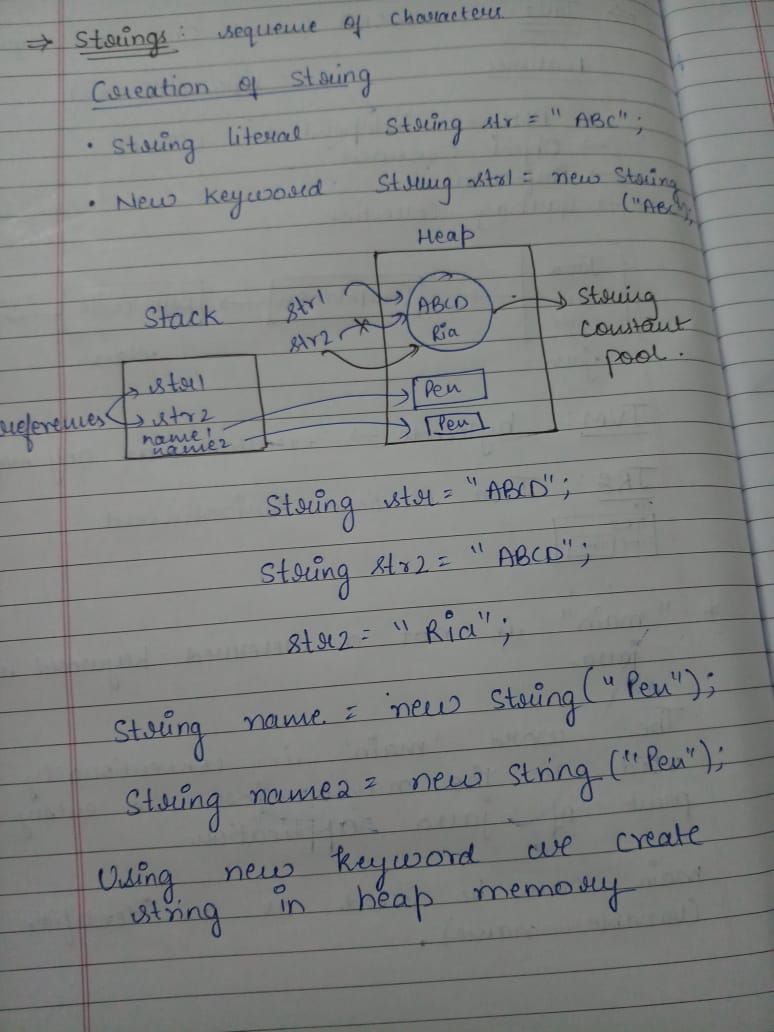 ⇒ Strings: sequence of characters
Creation of string
• String literal String str = "ABC";
• New keyword String str1 = new String
("ABC");
Heap
Stack
str1
str2
ABCD
Ria
→ String
constant
pool.
references
str1
str2
name1
name2
Pen
Pen
String str = "ABCD";
String str2 = "ABCD";
str2 = "Ria";
String name = new String("Pen");
String name2 = new String("Pen");
Using new keyword we create
string in heap memory